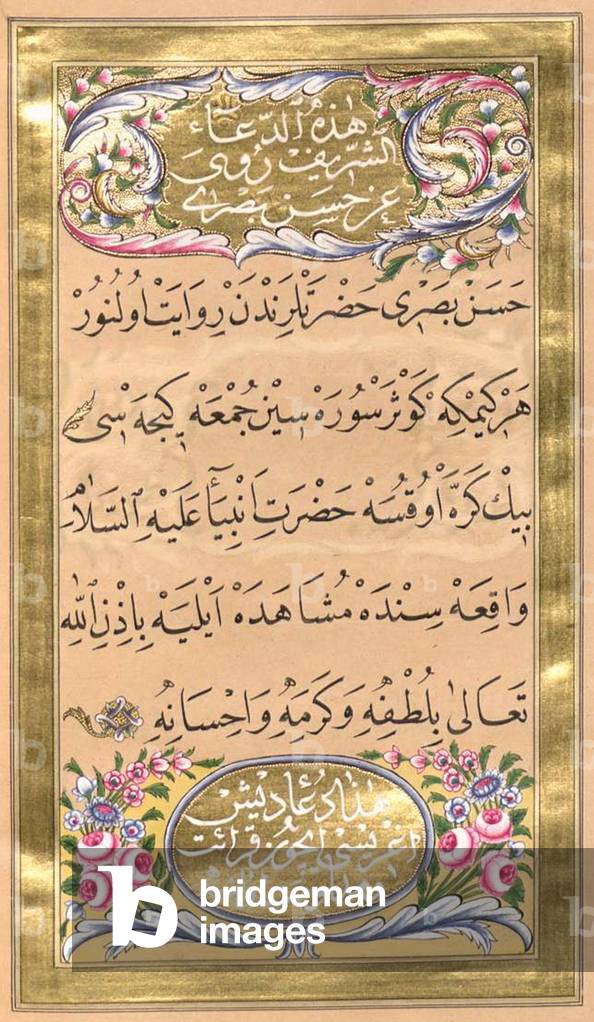 هٰذِهُ الدّعَاء
الشَّرِيف رُوِىَ
عَنْ حَسَن بَصْرِى
حَسَنْ بَصْرِى حَضْرَتْلَرِنْدَنْ رِوَايَتْ اُولُنُورْ
هَرْ كِيمْكِهْ كَوْثَرْ سُورَهْ سِينْ جُمْعَهْ كِيجَهْ سِى
بِيْك كَرَّهْ اُوقُسَهْ حَضْرَتِ اَنْبِيَآ عَلَيْهِ السَّلَامِ
وَاقِعَهْ سِنْدَهْ مُشَاهَدَهْ اَيْلَيَهْ بِاِذْنِ اللّٰهِ
تَعَالىٰ بِلُطْفِهِ وَكَرَمِهِ وَاِحْسَانِهِ
هٰذَا دُعَا دِيشْ
اغْرِيسى اِيچُون قِرَائَت
b bridgeman
images